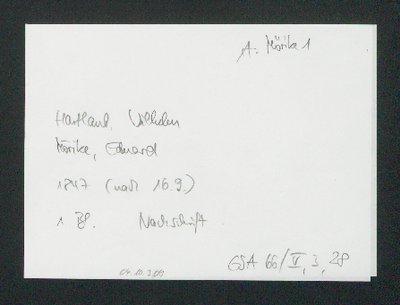 A: Mörike 1
Hartlaub, Wilhelm
Mörike, Eduard
1847 (nach 16.9.)
1 Bl. Nachschrift
GSA 66/V, 3, 28